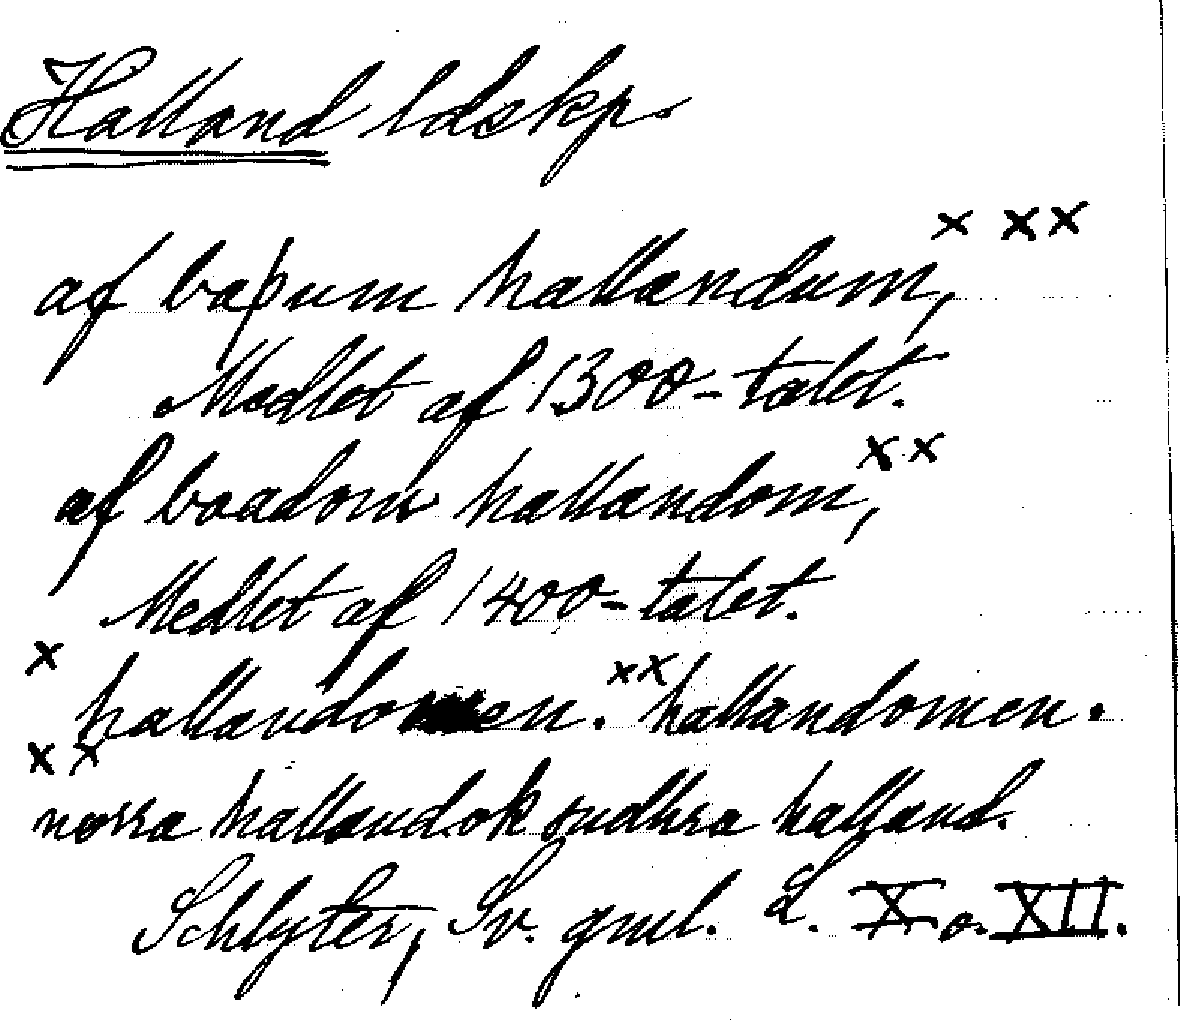 Halland ldskp.
x xx
af baþum hallandum,
Medlet af 1300-talet.
xx
af baadom hallandom,
Medlet af 1400-talet.
x hallandomen. xx hallandomen.
xx
norra halland ok sudhra halland.
Schlyter, Sv. gml. L. X o. XII.